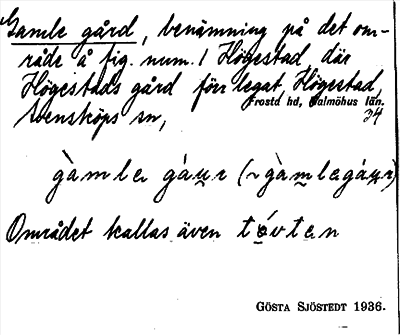 Gamle gård, benämning på det om-
råde å fig. num. 1 Högestad, där
Högestads gård förr legat. Högestad,
Frosta hd, Malmöhus län.
Svensköps sn, 34
gàmle gáur (~gàmlegáur)
Området kallas även tóvten
GÖSTA SJÖSTEDT 1936.